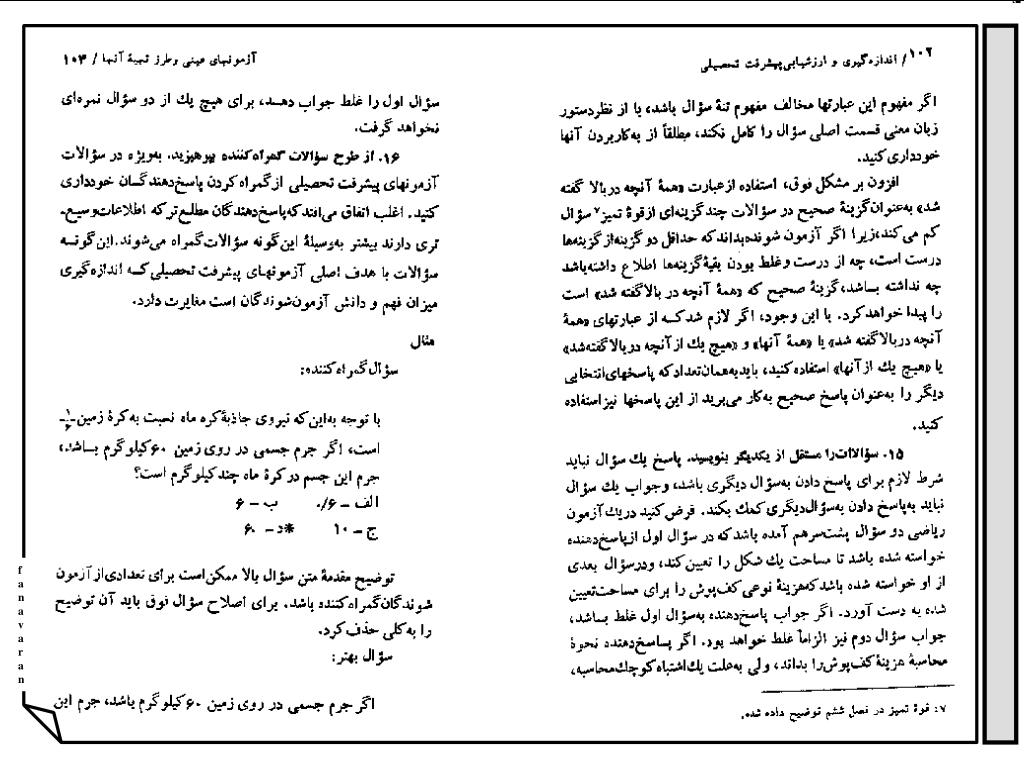 ۱۰۲ / اندازه‌گیری و ارزشیابی پیشرفت تحصیلی
اگر مفهوم این عبارتها مخالف مفهوم تنهٔ سؤال باشد، یا از نظر دستور
زبان معنی قسمت اصلی سؤال را کامل نکند، مطلقاً از به‌کاربردن آنها
خودداری کنید.
افزون بر مشکل فوق، استفاده از عبارت «همهٔ آنچه در بالا گفته
شد» به‌عنوان گزینهٔ صحیح در سؤالات چند گزینه‌ای از قوهٔ تمیز۷ سؤال
کم می‌کند، زیرا اگر آزمون شونده بداند که حداقل دو گزینه از گزینه‌ها
درست است، چه از درست و غلط بودن بقیهٔ گزینه‌ها اطلاع داشته باشد
چه نداشته باشد، گزینهٔ صحیح که «همهٔ آنچه در بالا گفته شد» است
را پیدا خواهد کرد. با این وجود، اگر لازم شد کــه از عبارتهای «همهٔ
آنچه در بالا گفته شد» یا «همهٔ آنها» و «هیچ یك از آنچه در بالا گفته شد»
یا «هیچ یك از آنها» استفاده کنید، باید به همان تعداد که پاسخهای انتخابی
دیگر را به‌عنوان پاسخ صحیح به‌کار می‌برید از این پاسخها نیز استفاده
کنید.
۱۵. سؤالات را مستقل از یکدیگر بنویسید. پاسخ یك سؤال نباید
شرط لازم برای پاسخ دادن به سؤال دیگری باشد، و جواب یك سؤال
نباید به پاسخ دادن به سؤال دیگری کمك بکند. فرض کنید در یك آزمون
ریاضی دو سؤال پشت سر هم آمده باشد که در سؤال اول از پاسخ‌دهنده
خواسته شده باشد تا مساحت یك شکل را تعیین کند، و در سؤال بعدی
از او خواسته شده باشد که هزینهٔ نوعی کف‌پوش را برای مساحت تعیین
شده به دست آورد. اگر جواب پاسخ‌دهنده به سؤال اول غلط بــاشد،
جواب سؤال دوم نیز الزاماً غلط خواهد بود. اگر پــاسخ‌دهنده نحوهٔ
محاسبهٔ هزینهٔ کف‌پوش را بداند، ولی به‌علت یك اشتباه کوچك محاسبه،
۷: قوهٔ تمیز در فصل ششم توضیح داده شده.
آزمونهای عینی و طرز تهیهٔ آنها / ۱۰۳
سؤال اول را غلط جواب دهــد، برای هیچ یك از دو سؤال نمره‌ای
نخواهد گرفت.
۱۶. از طرح سؤالات گمراه‌کننده بپرهیزید. به‌ویژه در سؤالات
آزمونهای پیشرفت تحصیلی از گمراه کردن پاسخ‌دهندگــان خودداری
کنید. اغلب اتفاق می‌افتد که پاسخ‌دهندگان مطلع‌تر که اطلاعات وسیع‌ـ
تری دارند بیشتر به‌وسیلهٔ این گونه سؤالات گمراه می‌شوند. این گونــه
سؤالات با هدف اصلی آزمونهــای پیشرفت تحصیلی کــه اندازه‌گیری
میزان فهم و دانش آزمون‌شوندگان است مغایرت دارد.
مثال
سؤال گمراه‌کننده:
با توجه به این که نیروی جاذبهٔ کره ماه نسبت به کرهٔ زمین ۱/۶
است، اگر جرم جسمی در روی زمین ۶۰ کیلوگرم بــاشد،
جرم این جسم در کرهٔ ماه چند کیلوگرم است؟
الف ـ ۰/۶ ب ـ ۶
ج ـ ۱۰ *د ـ ۶۰
توضیح مقدمهٔ متن سؤال بالا ممکن است برای تعدادی از آزمون
شوندگان گمراه‌کننده باشد. برای اصلاح سؤال فوق باید آن توضیح
را به کلی حذف کرد.
سؤال بهتر:
اگر جرم جسمی در روی زمین ۶۰ کیلوگرم باشد، جرم این
fanavaran